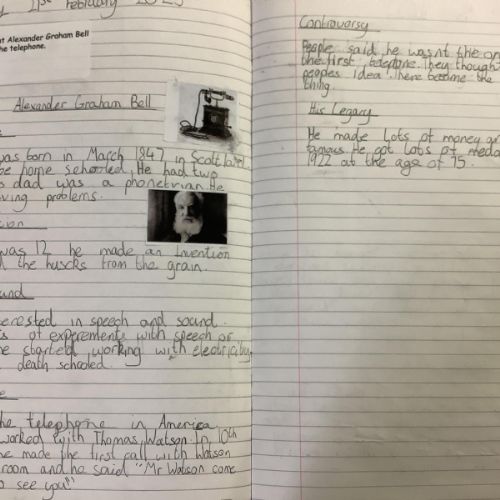 21st February 2023
t Alexander Graham Bell
he telephone.
Alexander Graham Bell
e
was born in March 1847 in Scotland
be home schooled, He had two
s dad was a phonetician. He
ving problems.
tion
was 12 he made an Invention
d the huscks from the grain.
und
erested in speech and sound.
ts of experements with speech or
he started working with electricity
death schooled.
e
he telephone in America
worked with Thomas Watson. In 10th
he made the first call with Watson
room and he said "Mr Watson come
o see you"
Controversy
People said he wasnt the on
the first telephone. They though
peoples idea. There become the
thing.
His Legacy
He made lots of money an
famous. He got lots of meda
1922 at the age of 75.